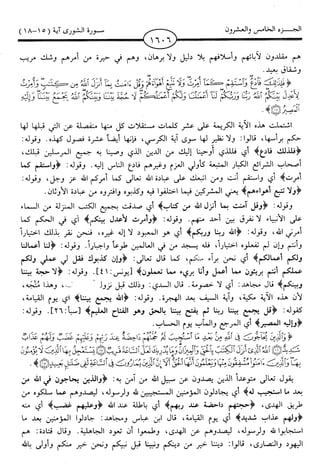 الجـــزء الخامس والعشرون
١٦٠٦
سورة الشورى آية (١٥-١٨)
هم مقلدون لآبائهم وأسلافهم بلا دليل ولا برهان، وهم في حيرة من أمرهم وشك مريب
وشقاق بعيد.
﴿فَلِذَلِكَ فَادْعُ وَاسْتَقِمْ كَمَا أُمِرْتَ وَلَا تَتَّبِعْ أَهْوَاءَهُمْ وَقُلْ آمَنتُ بِمَا أَنزَلَ اللَّهُ مِن كِتَابٍ وَأُمِرْتُ
لِأَعْدِلَ بَيْنَكُمُ اللَّهُ رَبُّنَا وَرَبُّكُمْ لَنَا أَعْمَالُنَا وَلَكُمْ أَعْمَالُكُمْ لَا حُجَّةَ بَيْنَنَا وَبَيْنَكُمُ اللَّهُ يَجْمَعُ بَيْنَنَا وَإِلَيْهِ
الْمَصِيرُ﴾
اشتملت هذه الآية الكريمة على عشر كلمات مستقلات كل منها منفصلة عن التي قبلها لها
حكم برأسها، قالوا: ولا نظير لها سوى آية الكرسي، فإنها أيضاً عشرة فصول كهذه. وقوله:
﴿فلذلك فادع﴾ أي فللذي أوحينا إليك من الدين الذي وصينا به جميع المرسلين قبلك،
أصحاب الشرائع الكبار المتبعة كأولي العزم وغيرهم فادع الناس إليه. وقوله: ﴿واستقم كما
أمرت﴾ أي واستقم أنت ومن اتبعك على عبادة الله تعالى كما أمركم الله عز وجل، وقوله:
﴿ولا تتبع أهواءهم﴾ يعني المشركين فيما اختلفوا فيه وكذبوه وافتروه من عبادة الأوثان.
وقوله: ﴿وقل آمنت بما أنزل الله من كتاب﴾ أي صدقت بجميع الكتب المنزلة من السماء
على الأنبياء لا نفرق بين أحد منهم. وقوله: ﴿وأمرت لأعدل بينكم﴾ أي في الحكم كما
أمرني الله، وقوله: ﴿الله ربنا وربكم﴾ أي هو المعبود لا إله غيره، فنحن نقر بذلك اختياراً
وأنتم وإن لم تفعلوه اختياراً، فله يسجد من في العالمين طوعاً واجباراً. وقوله: ﴿لنا أعمالنا
ولكم أعمالكم﴾ أي نحن برآء منكم، كما قال تعالى: ﴿وإن كذبوك فقل لي عملي ولكم
عملكم أنتم بريئون مما أعمل وأنا بريء مما تعملون﴾ [يونس: ٤١]. وقوله: ﴿لا حجة بيننا
وبينكم﴾ قال مجاهد: أي لا خصومة. قال السدي: وذلك قبل نزول وهذا متجه،
لأن هذه الآية مكية، وآية السيف بعد الهجرة. وقوله: ﴿الله يجمع بيننا﴾ أي يوم القيامة،
كقوله: ﴿قل يجمع بيننا ربنا ثم يفتح بيننا بالحق وهو الفتاح العليم﴾ [سبأ: ٢٦]. وقوله:
﴿وإليه المصير﴾ أي المرجع والمآب يوم الحساب.
﴿وَالَّذِينَ يُحَاجُّونَ فِي اللَّهِ مِن بَعْدِ مَا اسْتُجِيبَ لَهُ حُجَّتُهُمْ دَاحِضَةٌ عِندَ رَبِّهِمْ وَعَلَيْهِمْ غَضَبٌ وَلَهُمْ عَذَابٌ
يقول تعالى متوعداً الذين يصدون عن سبيل الله من آمن به: ﴿والذين يحاجون في الله من
بعد ما استجيب له﴾ أي يجادلون المؤمنين المستجيبين لله ولرسوله، ليصدوهم عما سلكوه من
طريق الهدى، ﴿حجتهم داحضة عند ربهم﴾ أي باطلة عند الله ﴿وعليهم غضب﴾ أي منه
﴿ولهم عذاب شديد﴾ أي يوم القيامة، قال ابن عباس ومجاهد: جادلوا المؤمنين بعد ما
استجابوا لله ولرسوله، ليصدوهم عن الهدى، وطمعوا أن تعود الجاهلية. وقال قتادة: هم
اليهود والنصارى، قالوا: ديننا خير من دينكم ونبينا قبل نبيكم ونحن خير منكم وأولى بالله